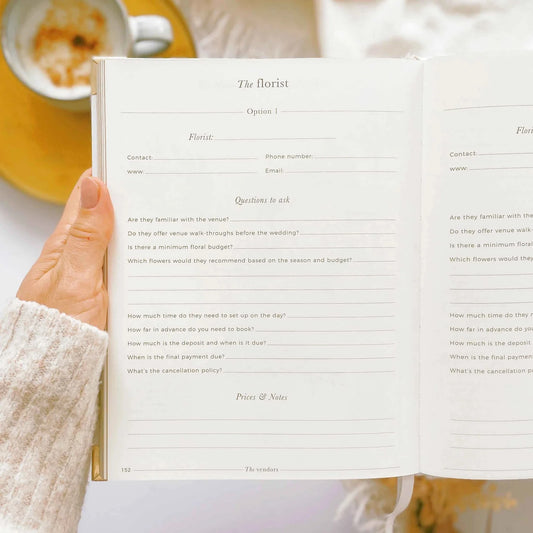 The florist
Option 1
Florist:
Contact: Phone number:
www. Email:
Questions to ask
Are they familiar with the venue?
Do they offer venue walk-throughs before the wedding?
Is there a minimum floral budget?
Which flowers would they recommend based on the season and budget?
How much time do they need to set up on the day?
How far in advance do you need to book?
How much is the deposit and when is it due?
When is the final payment due?
What's the cancellation policy?
Prices & Notes
152 The vendors
Contact:
www.
Are they familiar with the
Do they offer venue
Is there a minimum floral
Which flowers would they
How much time do they
How far in advance do
How much is the deposit
When is the final payment
What's the cancellation